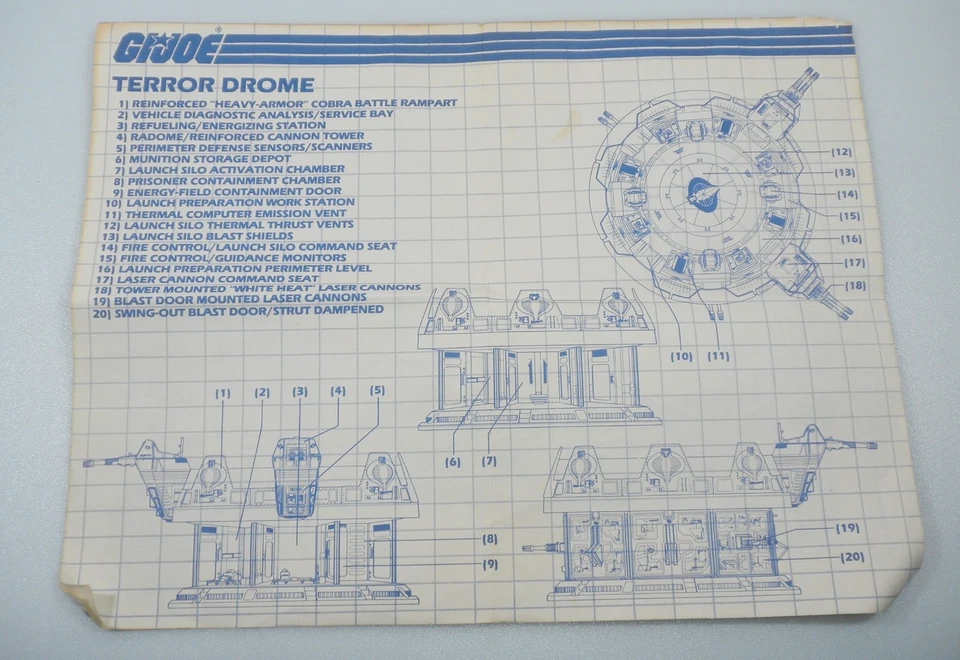 GI JOE ®
TERROR DROME
1) REINFORCED "HEAVY-ARMOR" COBRA BATTLE RAMPART
2) VEHICLE DIAGNOSTIC ANALYSIS/SERVICE BAY
3) REFUELING/ENERGIZING STATION
4) RADOME/REINFORCED CANNON TOWER
5) PERIMETER DEFENSE SENSORS/SCANNERS
6) MUNITION STORAGE DEPOT
7) LAUNCH SILO ACTIVATION CHAMBER
8) PRISONER CONTAINMENT CHAMBER
9) ENERGY-FIELD CONTAINMENT DOOR
10) LAUNCH PREPARATION WORK STATION
11) THERMAL COMPUTER EMISSION VENT
12) LAUNCH SILO THERMAL THRUST VENTS
13) LAUNCH SILO BLAST SHIELDS
14) FIRE CONTROL/LAUNCH SILO COMMAND SEAT
15) FIRE CONTROL/GUIDANCE MONITORS
16) LAUNCH PREPARATION PERIMETER LEVEL
17) LASER CANNON COMMAND SEAT
18) TOWER MOUNTED "WHITE HEAT" LASER CANNONS
19) BLAST DOOR MOUNTED LASER CANNONS
20) SWING-OUT BLAST DOOR/STRUT DAMPENED
(12)
(13)
(14)
(15)
(16)
(17)
(18)
(10) (11)
(6) (7)
(1) (2) (3) (4) (5)
(8)
(9)
(19)
(20)